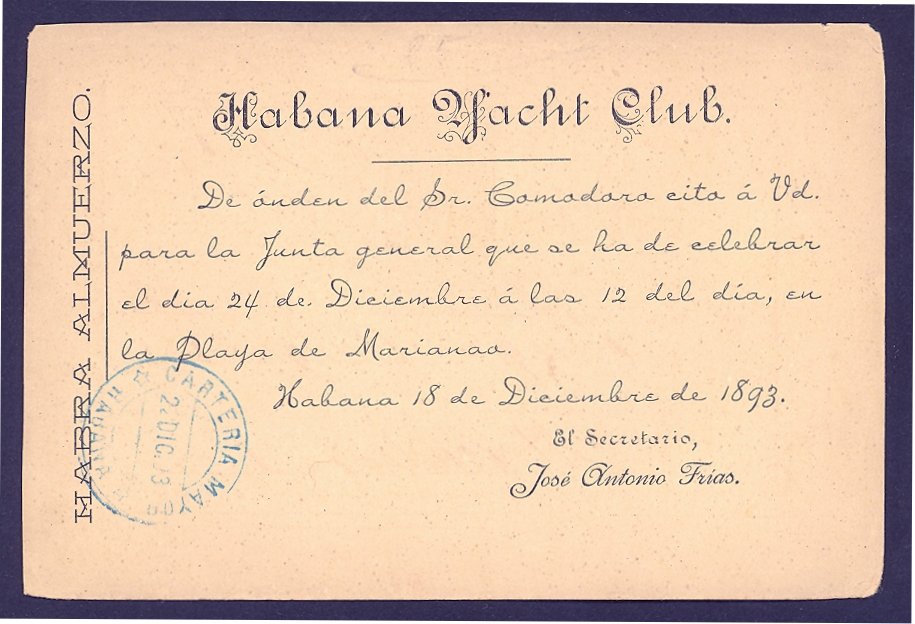 Habana Yacht Club.
De ónden del Sr. Comodoro cito á Vd.
para la Junta general que se ha de celebrar
el dia 24 de. Diciembre á las 12 del día, en
la Playa de Marianao.
Habana 18 de Diciembre de 1893.
El Secretario,
José Antonio Frias.
HABRA ALMUERZO.
CARTERIA MAYOR
HABANA
DIC.